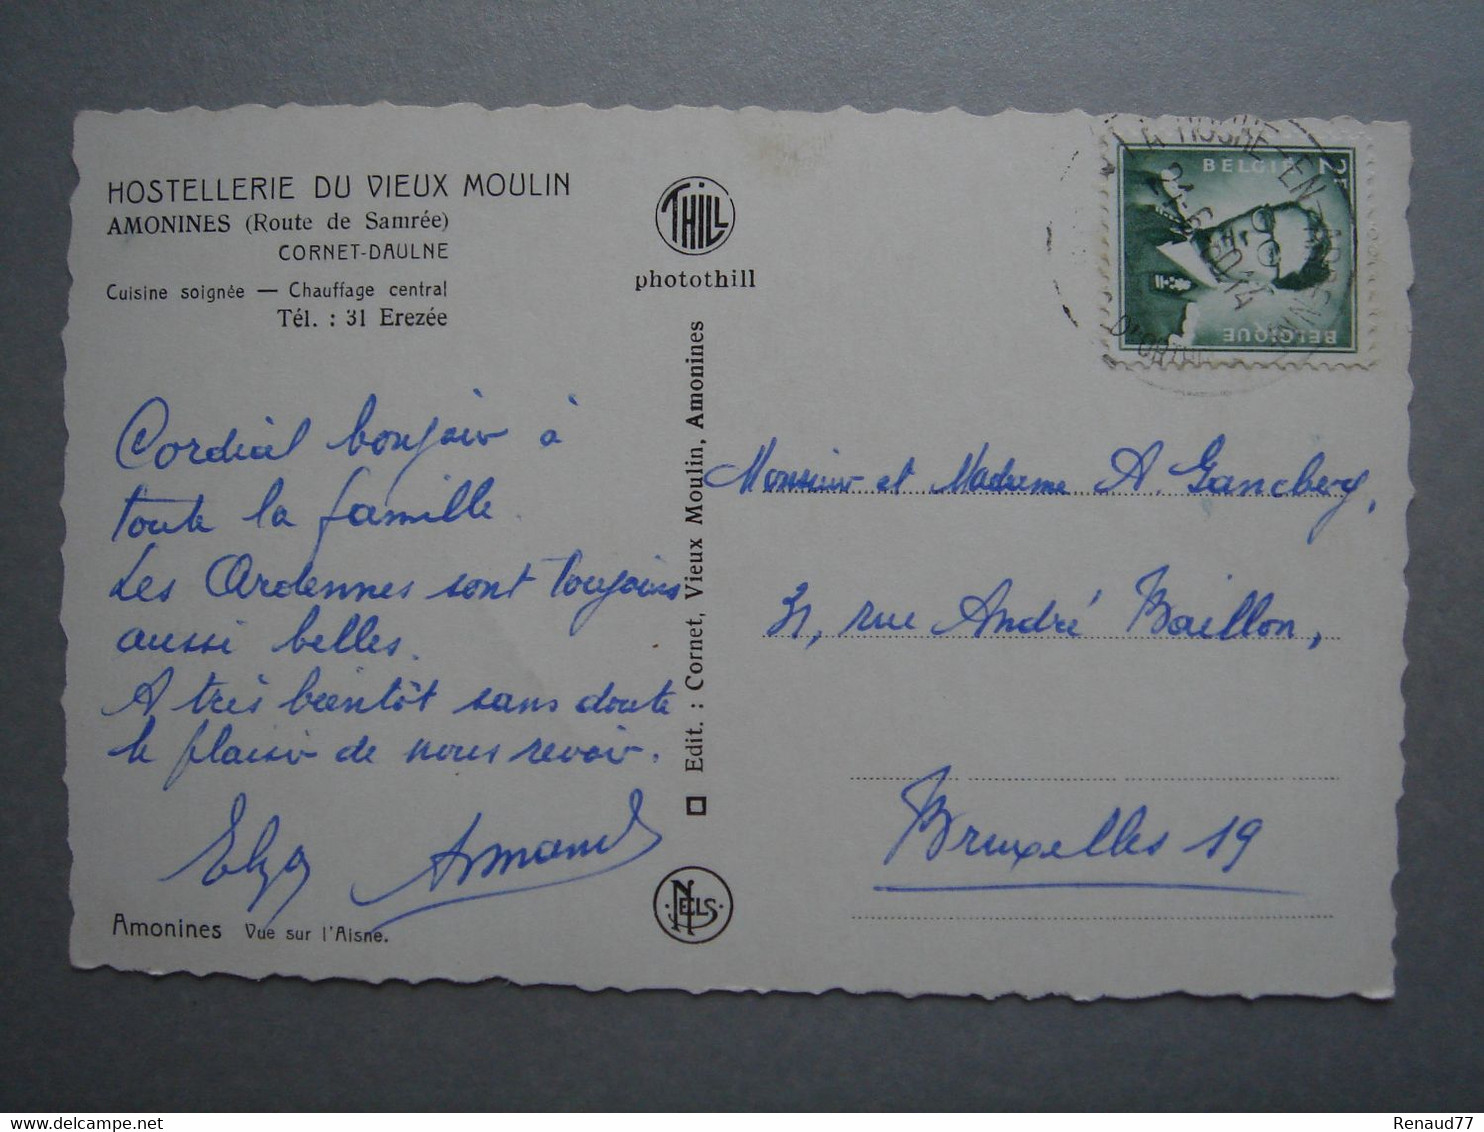 HOSTELLERIE DU VIEUX MOULIN
AMONINES (Route de Samrée)
CORNET-DAULNE
Cuisine soignée — Chauffage central
Tél. : 31 Erezée
Cordial bonjour à
toute la famille.
Les Ardennes sont toujours
aussi belles.
A très bientôt sans doute
le plaisir de nous revoir.
Elza Armand
Amonines Vue sur l'Aisne.
THILL
photothill
Edit. : Cornet, Vieux Moulin, Amonines
NELS
BELGIË 2F
BELGIQUE
LA ROCHE-EN-ARDENNE
Monsieur et Madame A. Gancberg,
31, rue André Baillon,
Bruxelles 19
Renaud77